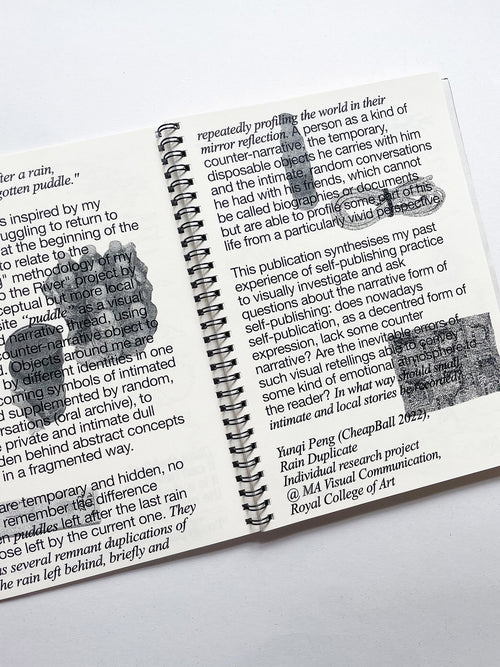 fter a rain,
gotten puddle."
s inspired by my
uggling to return to
at the beginning of the
to relate to the
g" methodology of my
o the River" project by
ceptual but more local
site "puddle" as a visual
narrative thread, using
counter-narrative object to
d. Objects around me are
by different identities in one
coming symbols of intimated
d supplemented by random,
ersations (oral archive), to
e private and intimate dull
den behind abstract concepts
in a fragmented way.
are temporary and hidden, no
remember the difference
en puddles left after the last rain
ose left by the current one. They
as several remnant duplications of
he rain left behind, briefly and
repeatedly profiling the world in their
mirror reflection. A person as a kind of
counter-narrative, the temporary,
disposable objects he carries with him
and the intimate, random conversations
he had with his friends, which cannot
be called biographies or documents
but are able to profile some part of his
life from a particular, vivid perspective.
This publication synthesises my past
experience of self-publishing practice
to visually investigate and ask
questions about the narrative form of
self-publishing: does nowadays
self-publication, as a decentred form of
expression, lack some counter
narrative? Are the inevitable errors of
such visual retellings able to convey
some kind of emotional atmosphere to
the reader? In what way should small,
intimate and local stories be recorded?
Yunqi Peng (CheapBall 2022),
Rain Duplicate
Individual research project
@ MA Visual Communication,
Royal College of Art